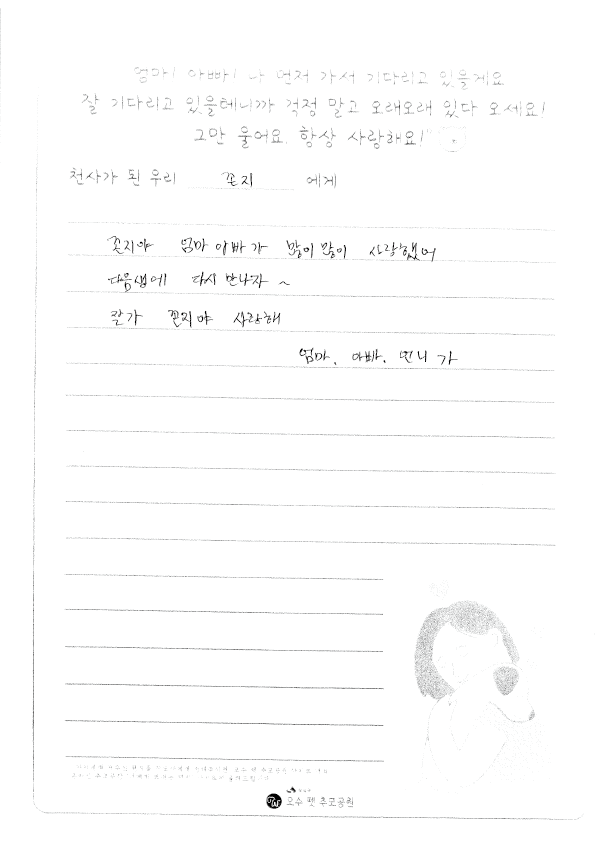 엄마! 아빠! 나 먼저 가서 기다리고 있을게요
잘 기다리고 있을테니까 걱정 말고 오래오래 있다 오세요!
그만 울어요. 항상 사랑해요!"
천사가 된 우리 꼰지 에게
꼰지야 엄마 아빠가 많이 많이 사랑했어
다음생에 다시 만나자 ~
잘가 꼰지야 사랑해
엄마, 아빠, 언니 가
오수 펫 추모공원